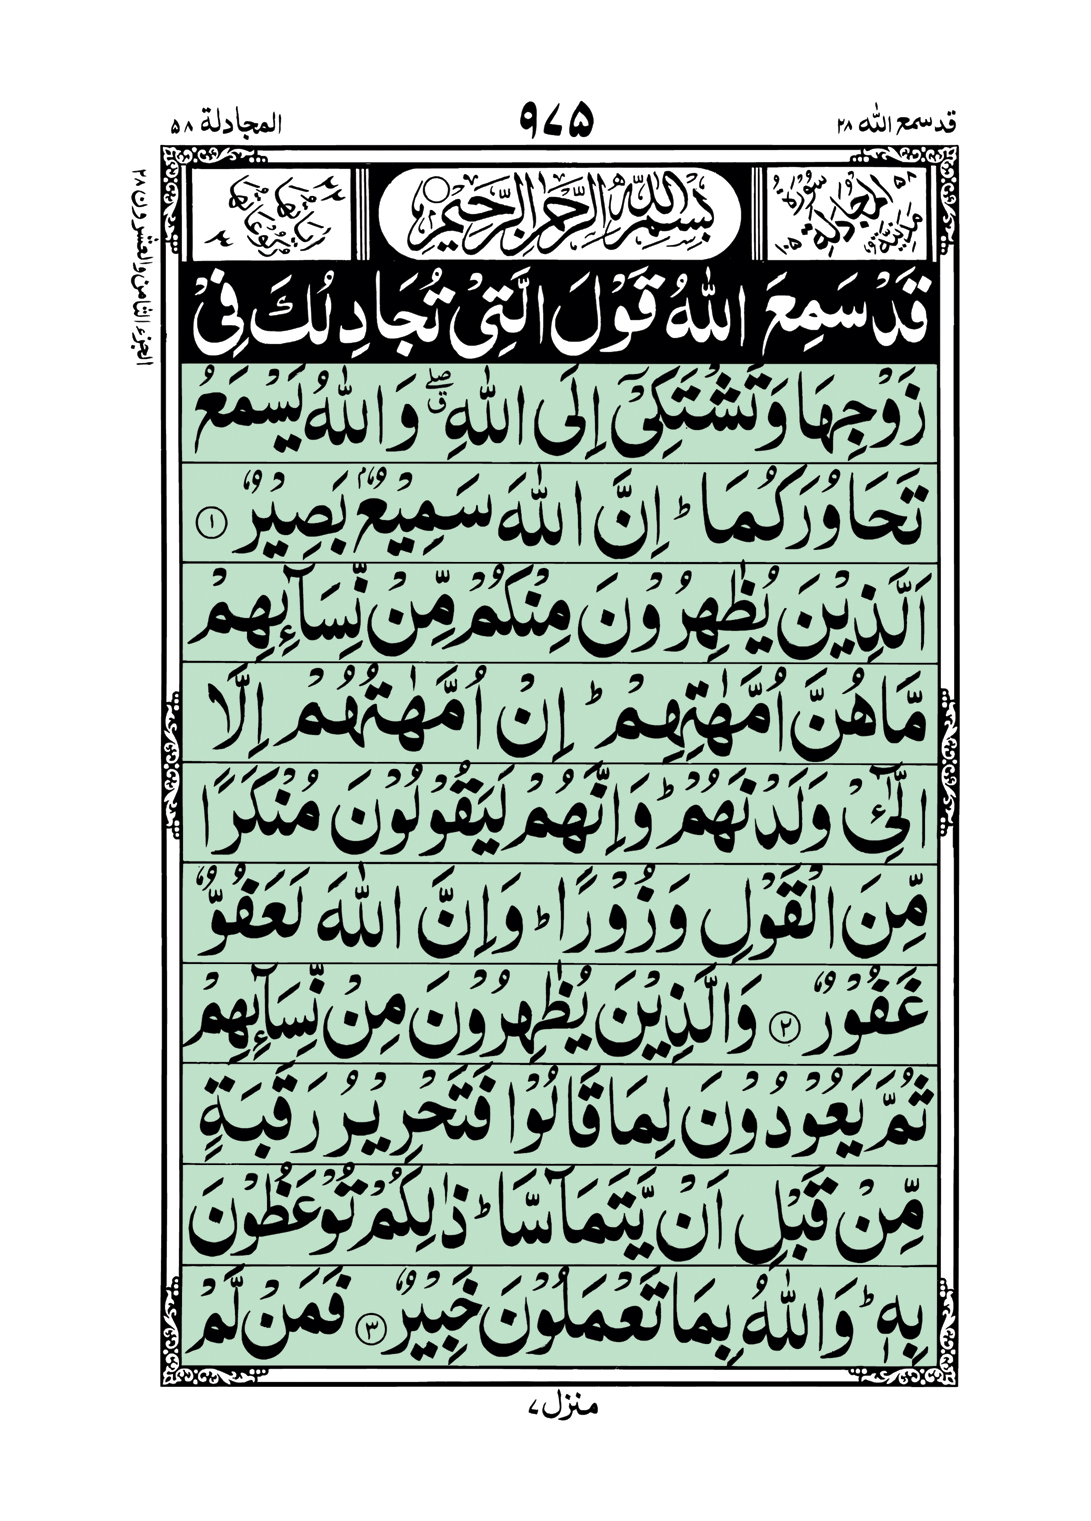 قد سمع الله ٢٨
٩٧٥
المجادلة ٥٨
الجزء الثامن والعشرون ٢٨
٥٨ سُوْرَةُ الْمُجَادِلَةِ مَدَنِيَّةٌ ١٠٥
بِسْمِ اللّٰهِ الرَّحْمٰنِ الرَّحِيْمِ
اٰيَاتُهَا ٢٢ رُكُوْعَاتُهَا ٣
قَدْ سَمِعَ اللّٰهُ قَوْلَ الَّتِىْ تُجَادِلُكَ فِىْ
زَوْجِهَا وَتَشْتَكِىْۤ اِلَى اللّٰهِ ۖق وَاللّٰهُ يَسْمَعُ
تَحَاوُرَكُمَا ؕ اِنَّ اللّٰهَ سَمِيْعٌۢ بَصِيْرٌ ①
اَلَّذِيْنَ يُظٰهِرُوْنَ مِنْكُمْ مِّنْ نِّسَآىِٕهِمْ
مَّا هُنَّ اُمَّهٰتِهِمْ ؕ اِنْ اُمَّهٰتُهُمْ اِلَّا
الّٰٓـِٔىْ وَلَدْنَهُمْ ؕ وَاِنَّهُمْ لَيَقُوْلُوْنَ مُنْكَرًا
مِّنَ الْقَوْلِ وَزُوْرًا ؕ وَاِنَّ اللّٰهَ لَعَفُوٌّ
غَفُوْرٌ ② وَالَّذِيْنَ يُظٰهِرُوْنَ مِنْ نِّسَآىِٕهِمْ
ثُمَّ يَعُوْدُوْنَ لِمَا قَالُوْا فَتَحْرِيْرُ رَقَبَةٍ
مِّنْ قَبْلِ اَنْ يَّتَمَآسَّا ؕ ذٰلِكُمْ تُوْعَظُوْنَ
بِهٖ ؕ وَاللّٰهُ بِمَا تَعْمَلُوْنَ خَبِيْرٌ ③ فَمَنْ لَّمْ
منزل ٧